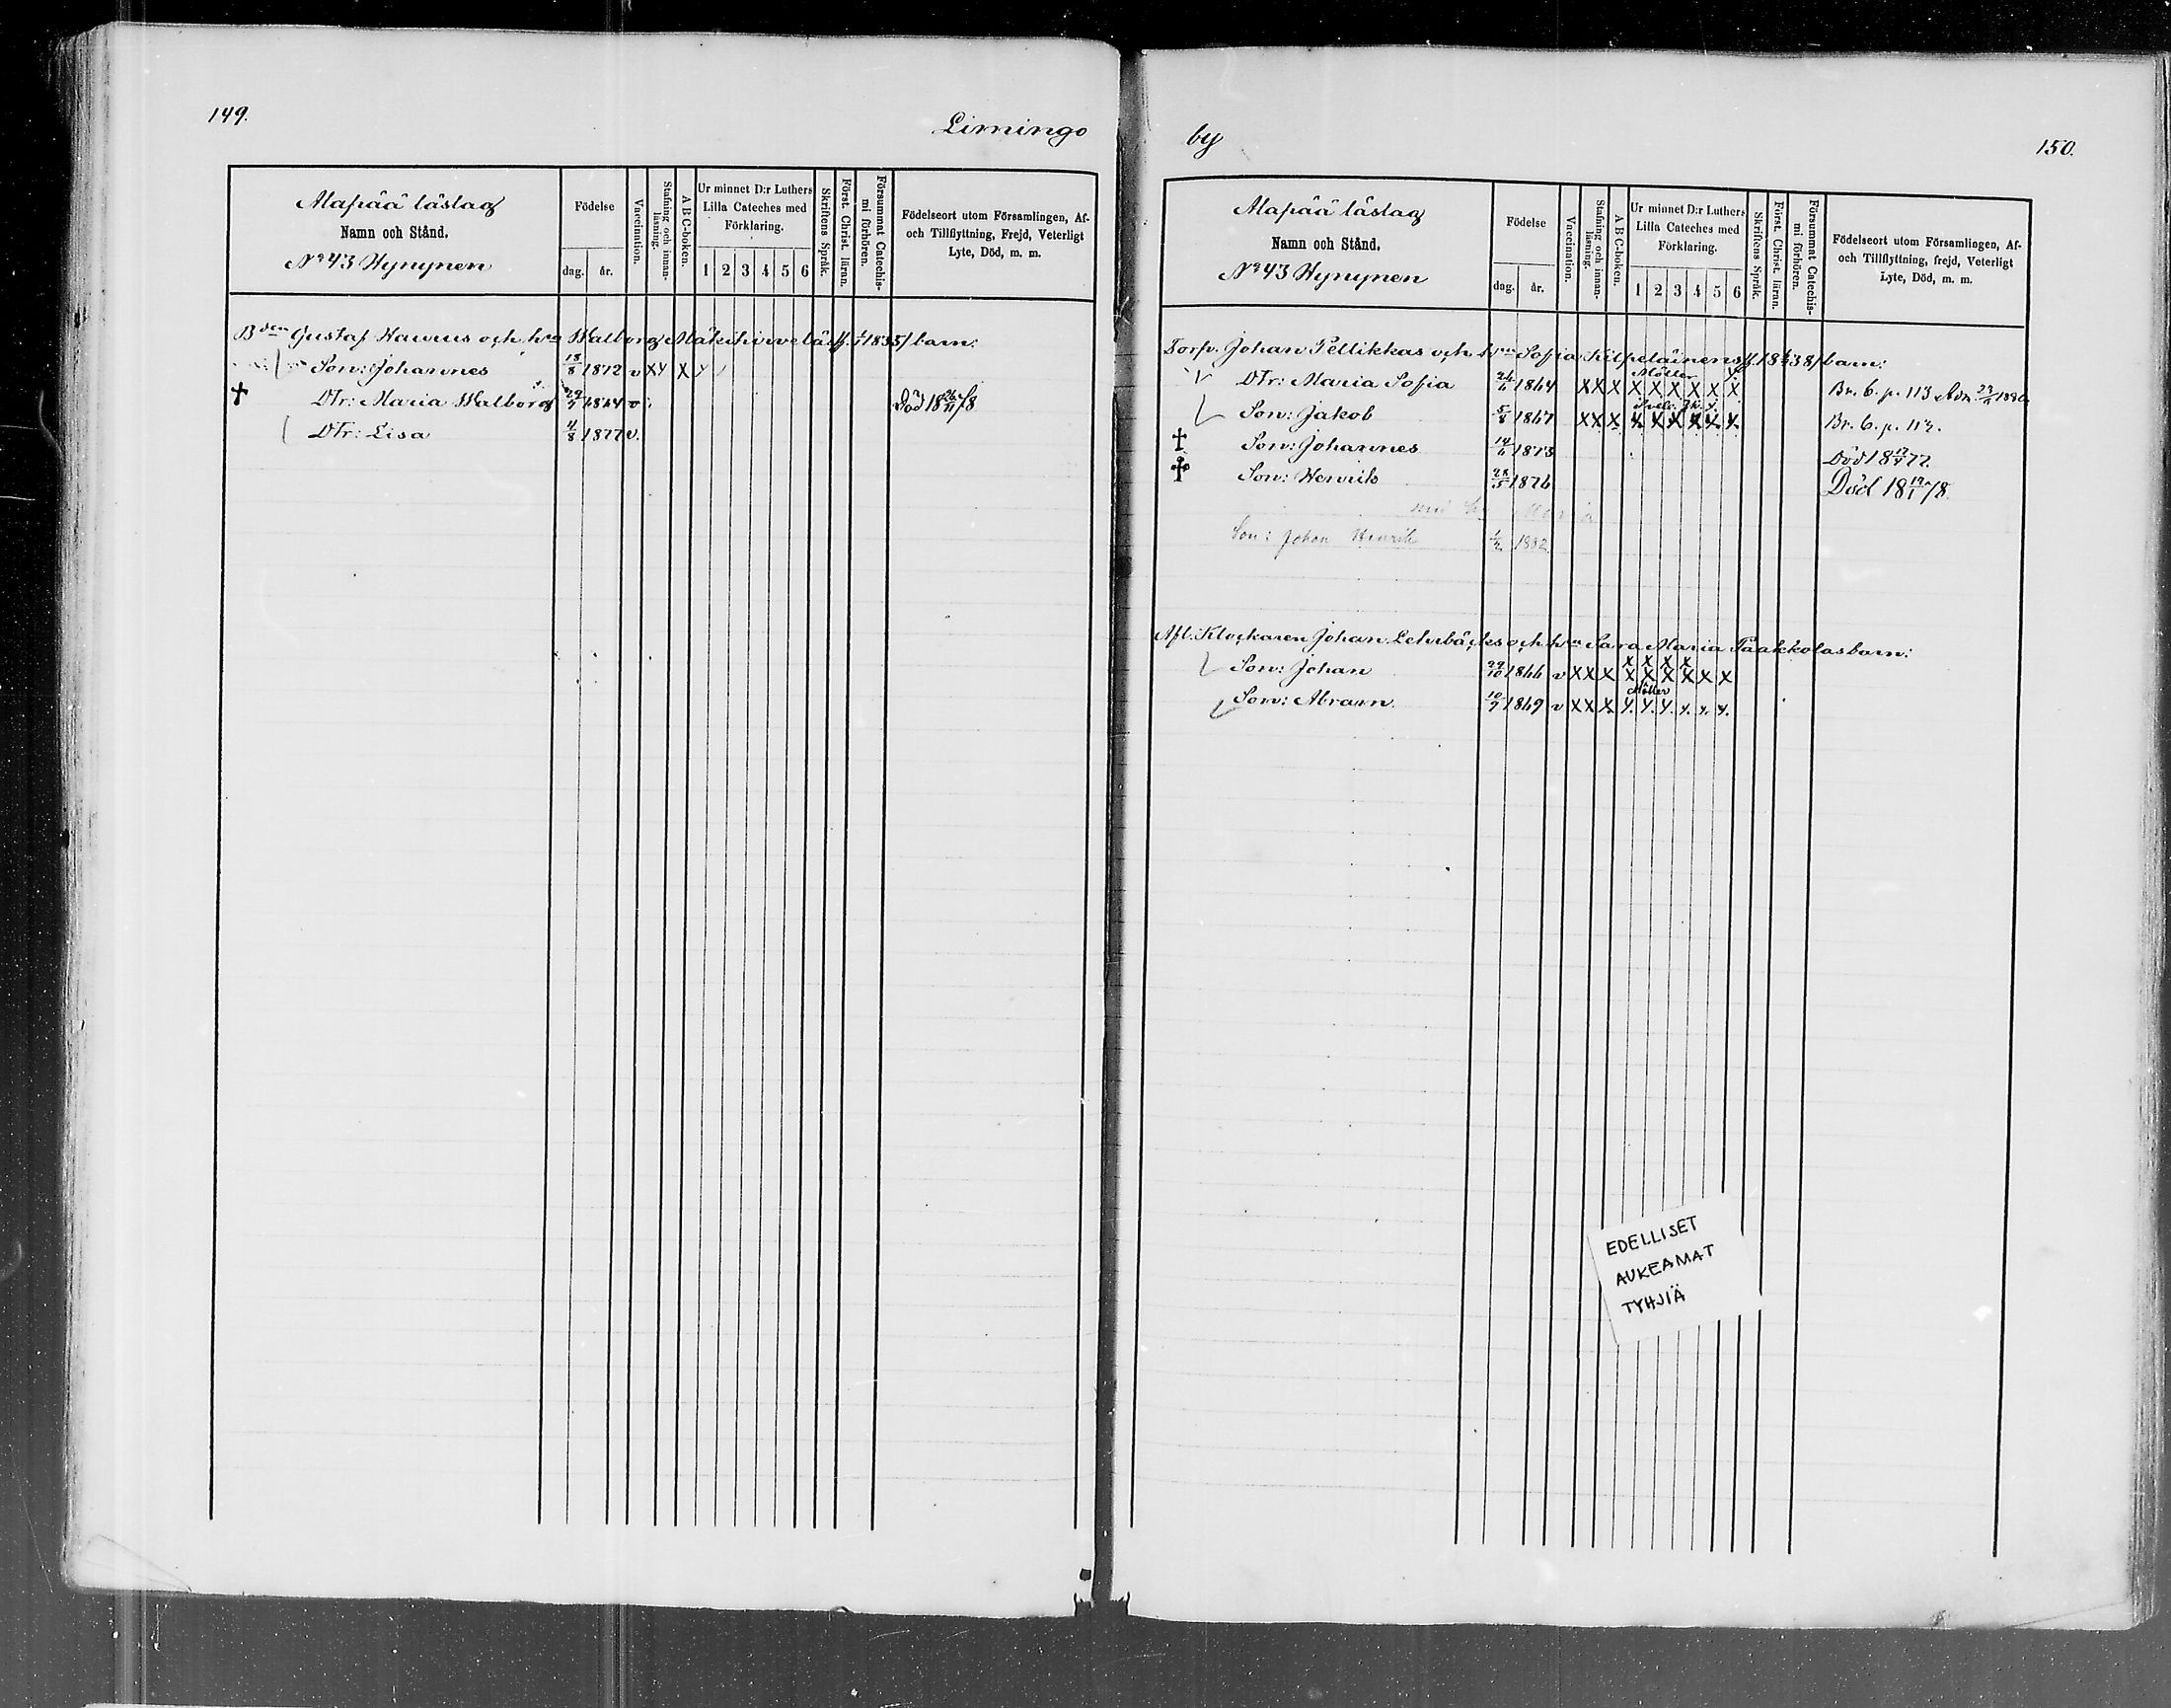 149.
Limingo
Alapää läslag
Namn och Stånd.
No 43 Hynynen
Födelse
dag. år.
Vaccination.
Stafning och innan-
läsning.
A B C-boken.
Ur minnet D:r Luthers
Lilla Cateches med
Förklaring.
1 2 3 4 5 6
Skriftens Språk.
Först. Christ. läran.
Försummat Catechis-
mi förhören.
Födelseort utom Församlingen, Af-
och Tillflyttning, Frejd, Veterligt
Lyte, Död, m. m.
Gustaf och hu Walborg barn:
Son: Johannes 18/8 1872 v X Y X
DTr: Maria Walborg v Död
DTr: Lisa 4/8 1877 v.
by
150.
Alapää läslag
Namn och Stånd.
No 43 Hynynen
Födelse
dag. år.
Vaccination.
Stafning och innan-
läsning.
A B C-boken.
Ur minnet D:r Luthers
Lilla Cateches med
Förklaring.
1 2 3 4 5 6
Skriftens Språk.
Först. Christ. läran.
Försummat Catechis-
mi förhören.
Födelseort utom Församlingen, Af-
och Tillflyttning, frejd, Veterligt
Lyte, Död, m. m.
Torp. Johan Pellikkas och hu Sofia Kilpeläinens barn:
Möller
DTr: Maria Sofia 1864 X X X X X X X X X Br. 6. p. 113
Son: Jakob 1867 X X X X X X X X X Br. 6. p. 113.
Son: Johannes 14/6 1873 Död
Son: Henrik 28/5 1876 Död
Maria
Son: Johan Henrik 1882
Afl. Klockaren Johan Lehrbäcks och hu Sara Maria Paakkolas barn:
X X X X
Son: Johan 29/10 1866 v X X X X X X X X X
Möller
Son: Abram. 1869 v X X X Y. Y. Y. Y. Y. Y.
EDELLISET
AUKEAMAT
TYHJIÄ